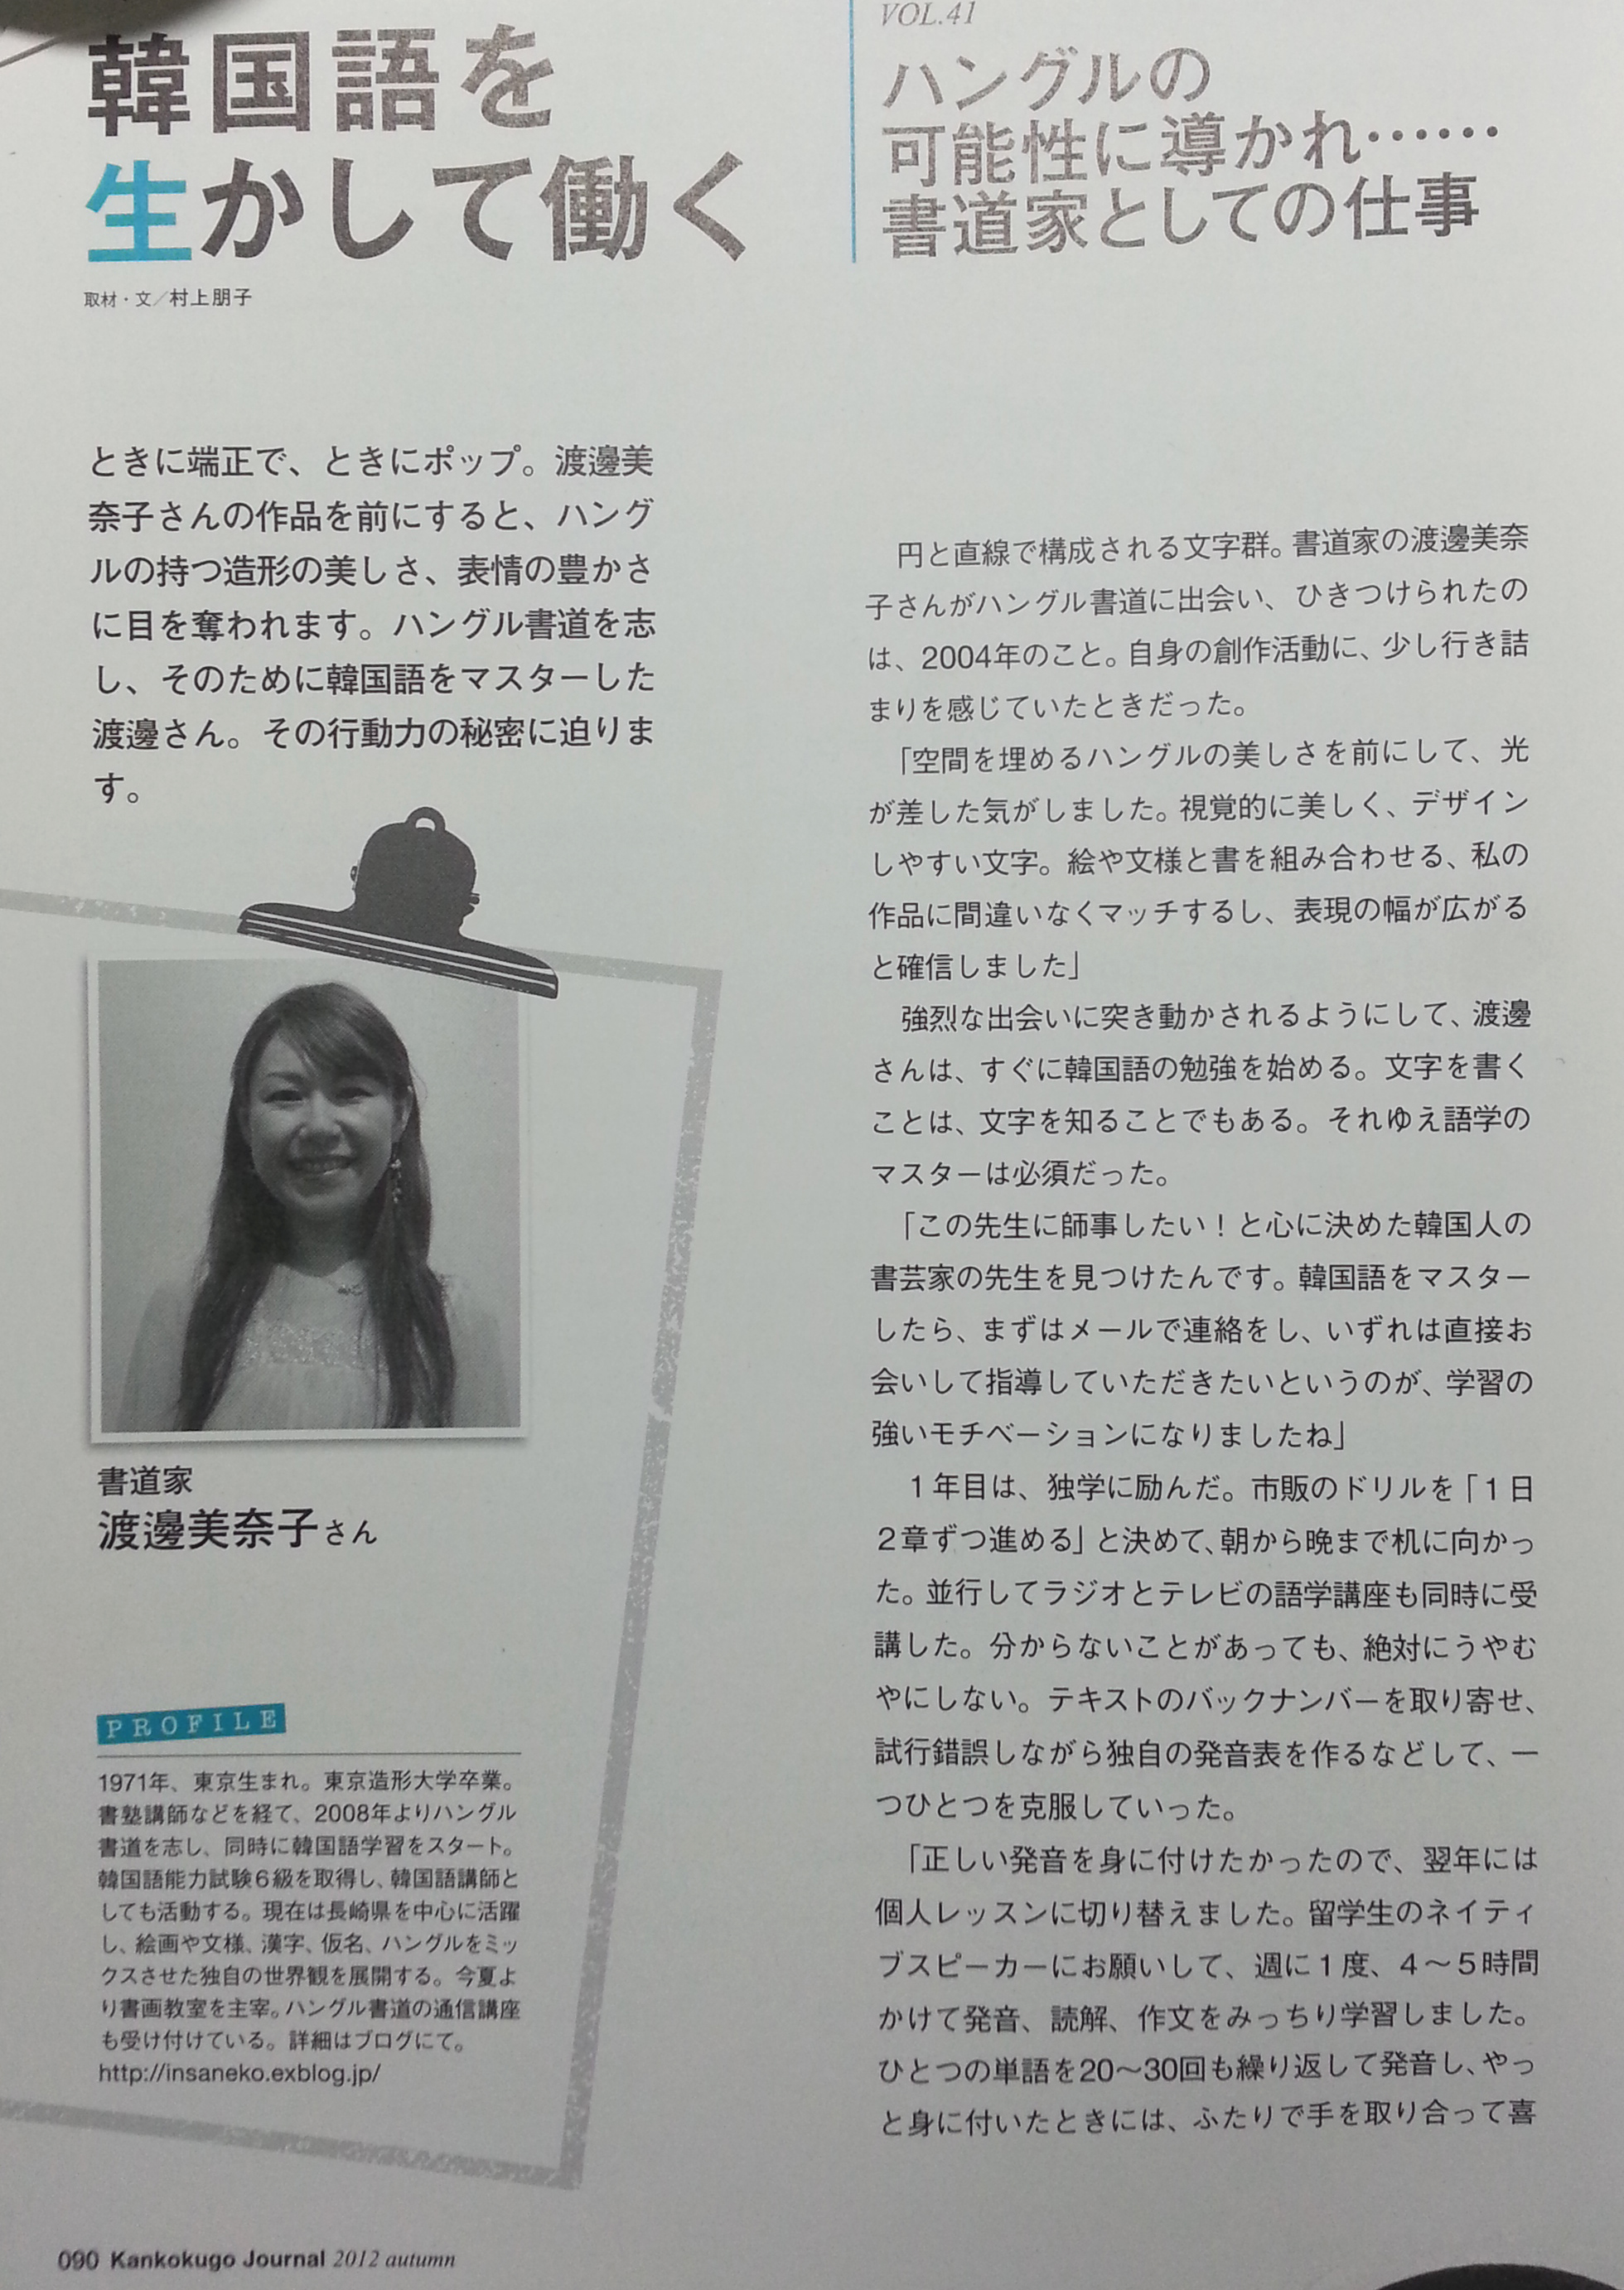 韓国語を
生かして働く
取材・文／村上朋子
VOL.41
ハングルの
可能性に導かれ……
書道家としての仕事
ときに端正で、ときにポップ。渡邊美
奈子さんの作品を前にすると、ハング
ルの持つ造形の美しさ、表情の豊かさ
に目を奪われます。ハングル書道を志
し、そのために韓国語をマスターした
渡邊さん。その行動力の秘密に迫りま
す。
書道家
渡邊美奈子さん
PROFILE
1971年、東京生まれ。東京造形大学卒業。
書塾講師などを経て、2008年よりハングル
書道を志し、同時に韓国語学習をスタート。
韓国語能力試験6級を取得し、韓国語講師と
しても活動する。現在は長崎県を中心に活躍
し、絵画や文様、漢字、仮名、ハングルをミッ
クスさせた独自の世界観を展開する。今夏よ
り書画教室を主宰。ハングル書道の通信講座
も受け付けている。詳細はブログにて。
http://insaneko.exblog.jp/
円と直線で構成される文字群。書道家の渡邊美奈
子さんがハングル書道に出会い、ひきつけられたの
は、2004年のこと。自身の創作活動に、少し行き詰
まりを感じていたときだった。
「空間を埋めるハングルの美しさを前にして、光
が差した気がしました。視覚的に美しく、デザイン
しやすい文字。絵や文様と書を組み合わせる、私の
作品に間違いなくマッチするし、表現の幅が広がる
と確信しました」
強烈な出会いに突き動かされるようにして、渡邊
さんは、すぐに韓国語の勉強を始める。文字を書く
ことは、文字を知ることでもある。それゆえ語学の
マスターは必須だった。
「この先生に師事したい！と心に決めた韓国人の
書芸家の先生を見つけたんです。韓国語をマスター
したら、まずはメールで連絡をし、いずれは直接お
会いして指導していただきたいというのが、学習の
強いモチベーションになりましたね」
１年目は、独学に励んだ。市販のドリルを「１日
２章ずつ進める」と決めて、朝から晩まで机に向かっ
た。並行してラジオとテレビの語学講座も同時に受
講した。分からないことがあっても、絶対にうやむ
やにしない。テキストのバックナンバーを取り寄せ、
試行錯誤しながら独自の発音表を作るなどして、一
つひとつを克服していった。
「正しい発音を身に付けたかったので、翌年には
個人レッスンに切り替えました。留学生のネイティ
ブスピーカーにお願いして、週に１度、４～５時間
かけて発音、読解、作文をみっちり学習しました。
ひとつの単語を20～30回も繰り返して発音し、やっ
と身に付いたときには、ふたりで手を取り合って喜
090 Kankokugo Journal 2012 autumn